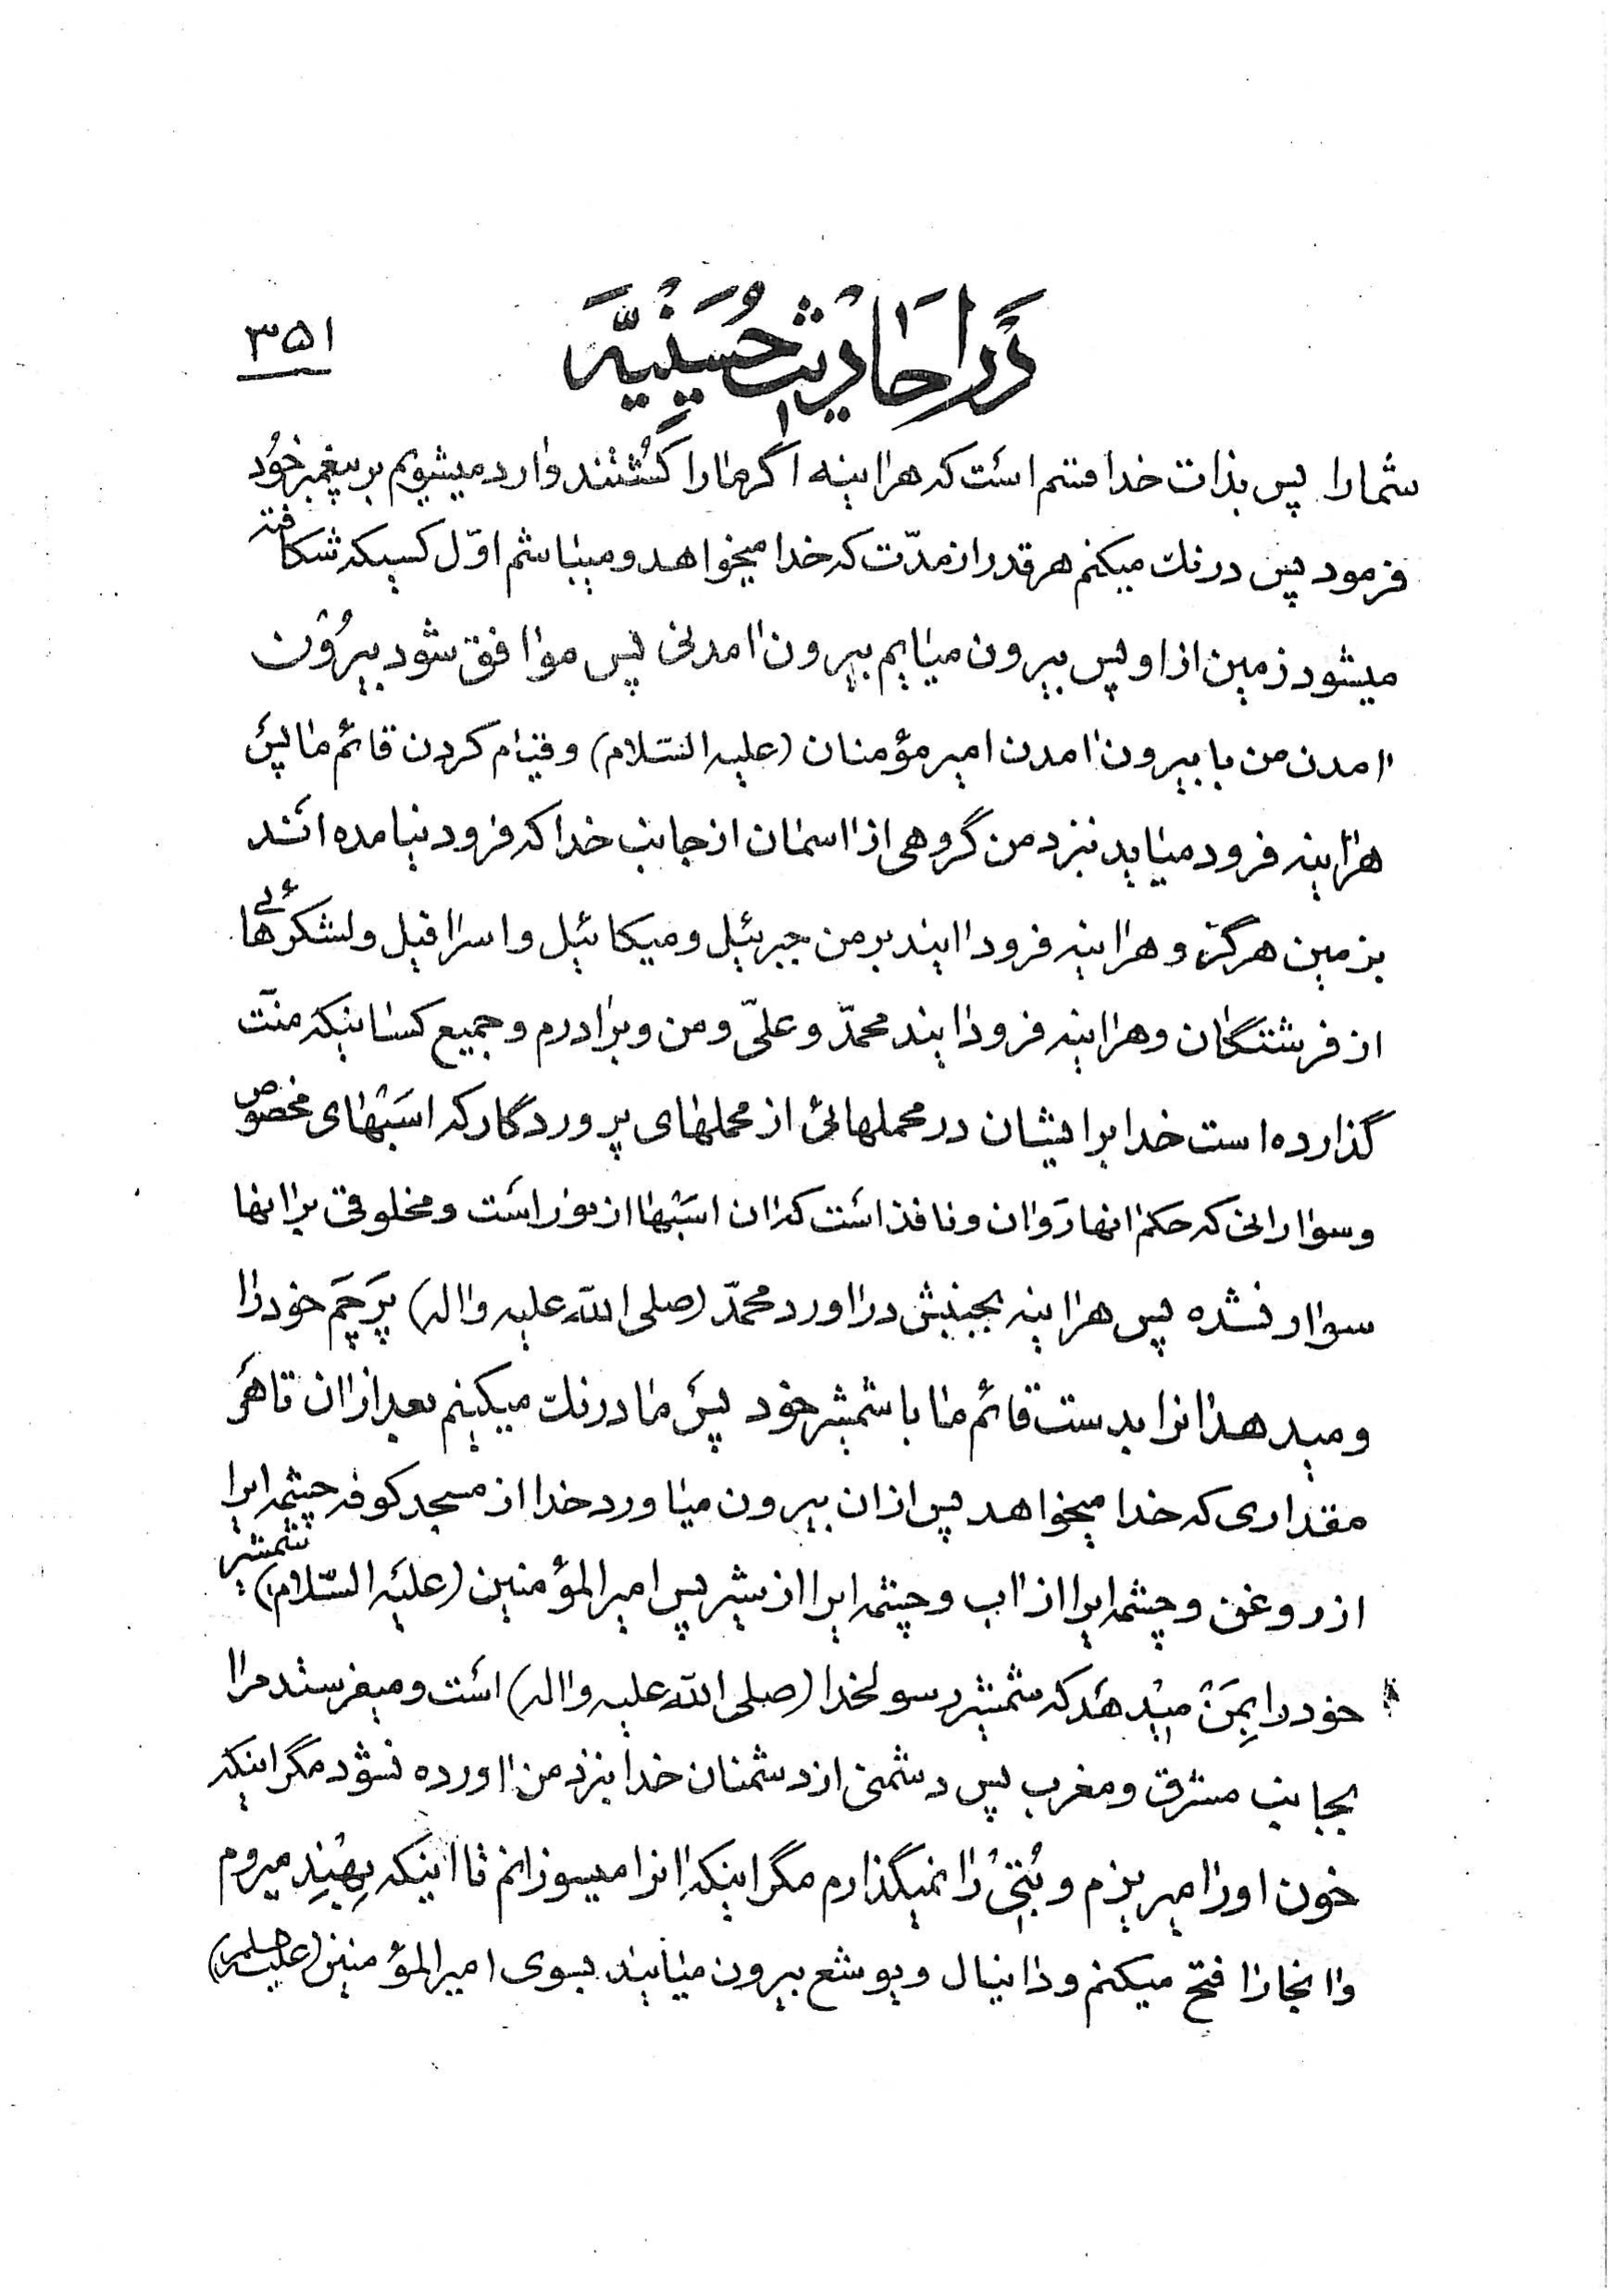 در احادیث حسینیه
۳۵۱
شما را پس بذات خدا قسم است که هراینه اگر ما را کشتند وارد میشویم بر پیغمبر خود
فرمود پس درنك میکنم هر قدر از مدّت که خدا میخواهد و میباشم اوّل کسیکه شکافته
میشود زمین از او پس بیرون میایم بیرون امدنی پس موافق شود بیرُون
امدن من با بیرون امدن امیر مؤمنان (علیه السّلام) و قیام کردن قائم ما پس
هراینه فرود میاید نزد من گروهی از اسمان از جانب خدا که فرود نیامده اند
بزمین هرگز و هراینه فرود ایند بر من جبرئیل و میکائیل و اسرافیل و لشکرهائی
از فرشتگان و هراینه فرود ایند محمّد و علیّ و من و برادرم و جمیع کسانیکه منّت
گذارده است خدا بر ایشان در محملهائی از محملهای پروردگار که اسَبْهای مخصوص
و سوارانی که حکم انها رَوان و نافذ است که ان اسَبْها از نور است و مخلوقی بر انها
سوار نشده پس هراینه بجنبش دراورد محمّد (صلی الله علیه واله) پَرچَم خود را
و میدهد انرا بدست قائم ما با شمشیر خود پس ما درنك میکنیم بعد از ان تا هَر
مقداری که خدا میخواهد پس از ان بیرون میاورد خدا از مسجد کوفه چشمه ایرا
از روغن و چشمه ایرا از اب و چشمه ایرا از شیر پس امیرالمؤمنین (علیه السّلام) شمشیر
خود را بِمَنْ میْدهَد که شمشیر رسولخدا (صلی الله علیه واله) است و میفرستد مرا
بجانب مشرق و مغرب پس دشمنی از دشمنان خدا نزد من اورده نشود مگر اینکه
خون او را میریزم و بُتیْ را نمیگذارم مگر اینکه انرا میسوزانم تا اینکه بِهِنِد میروم
و انجا را فتح میکنم و دانیال و یوشع بیرون میایند بسوی امیرالمؤمنین (علیه السلم)